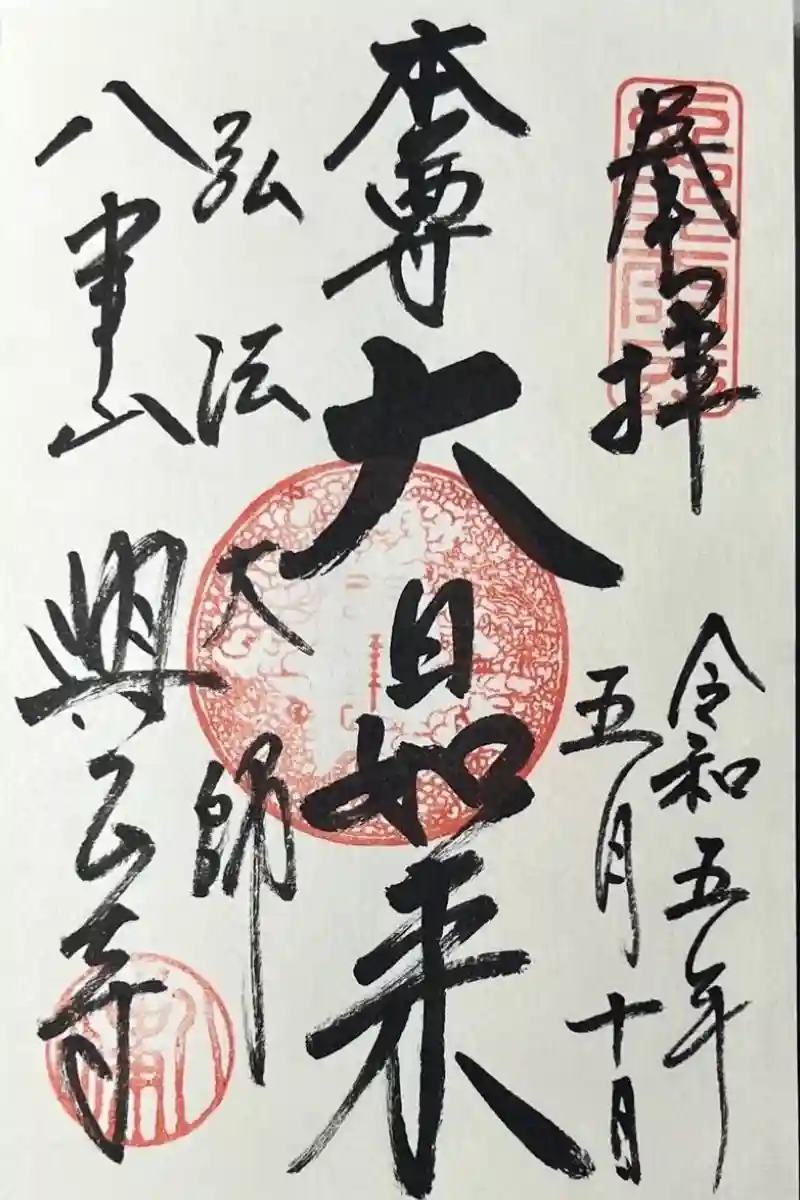 奉拝
令和五年
五月十日
本尊 大日如来
弘法大師
八事山 興正寺